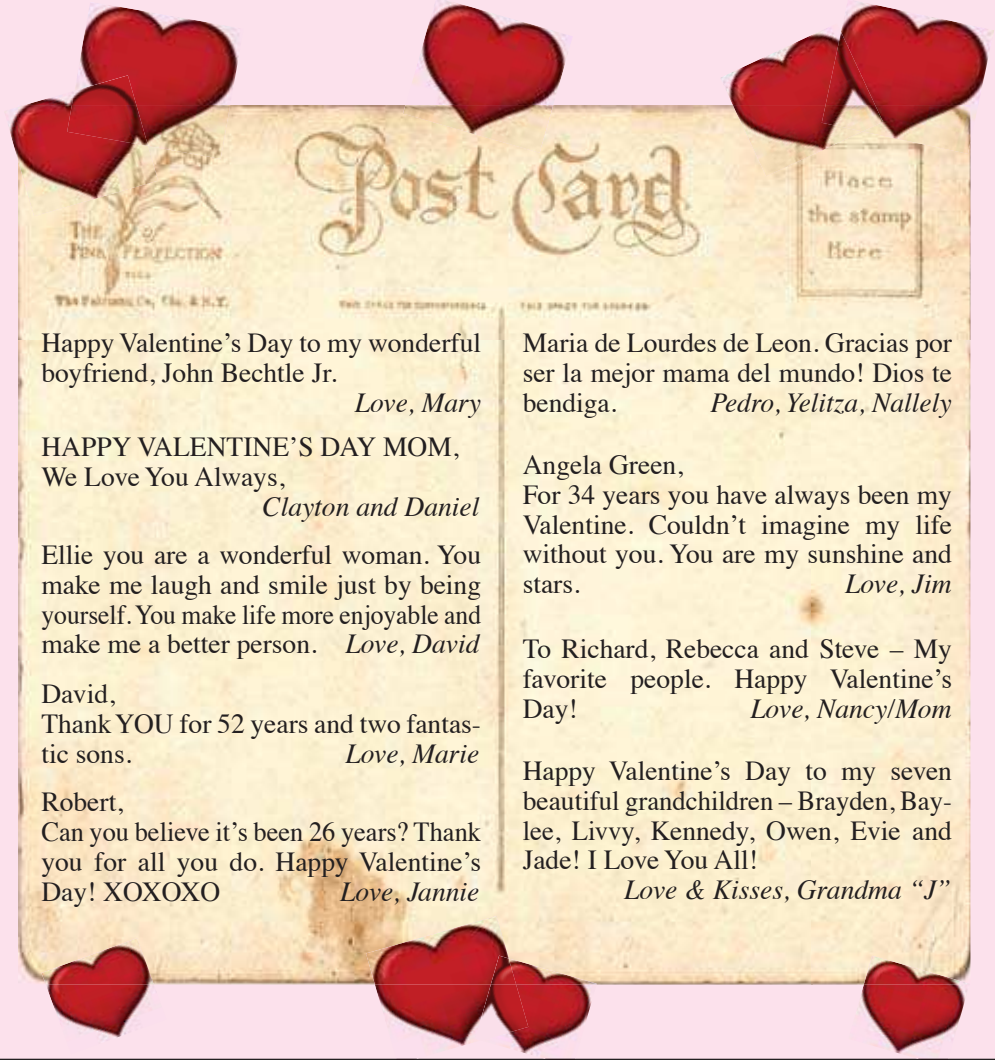 Post Card
THE of
PINK PERFECTION
The Fairman Co, Chi. & N.Y.
THIS SPACE FOR CORRESPONDENCE
THIS SPACE FOR ADDRESS
Place
the stamp
Here
Happy Valentine’s Day to my wonderful
boyfriend, John Bechtle Jr.
Love, Mary
HAPPY VALENTINE’S DAY MOM,
We Love You Always,
Clayton and Daniel
Ellie you are a wonderful woman. You
make me laugh and smile just by being
yourself. You make life more enjoyable and
make me a better person. Love, David
David,
Thank YOU for 52 years and two fantas-
tic sons. Love, Marie
Robert,
Can you believe it’s been 26 years? Thank
you for all you do. Happy Valentine’s
Day! XOXOXO Love, Jannie
Maria de Lourdes de Leon. Gracias por
ser la mejor mama del mundo! Dios te
bendiga. Pedro, Yelitza, Nallely
Angela Green,
For 34 years you have always been my
Valentine. Couldn’t imagine my life
without you. You are my sunshine and
stars. Love, Jim
To Richard, Rebecca and Steve – My
favorite people. Happy Valentine’s
Day! Love, Nancy/Mom
Happy Valentine’s Day to my seven
beautiful grandchildren – Brayden, Bay-
lee, Livvy, Kennedy, Owen, Evie and
Jade! I Love You All!
Love & Kisses, Grandma “J”